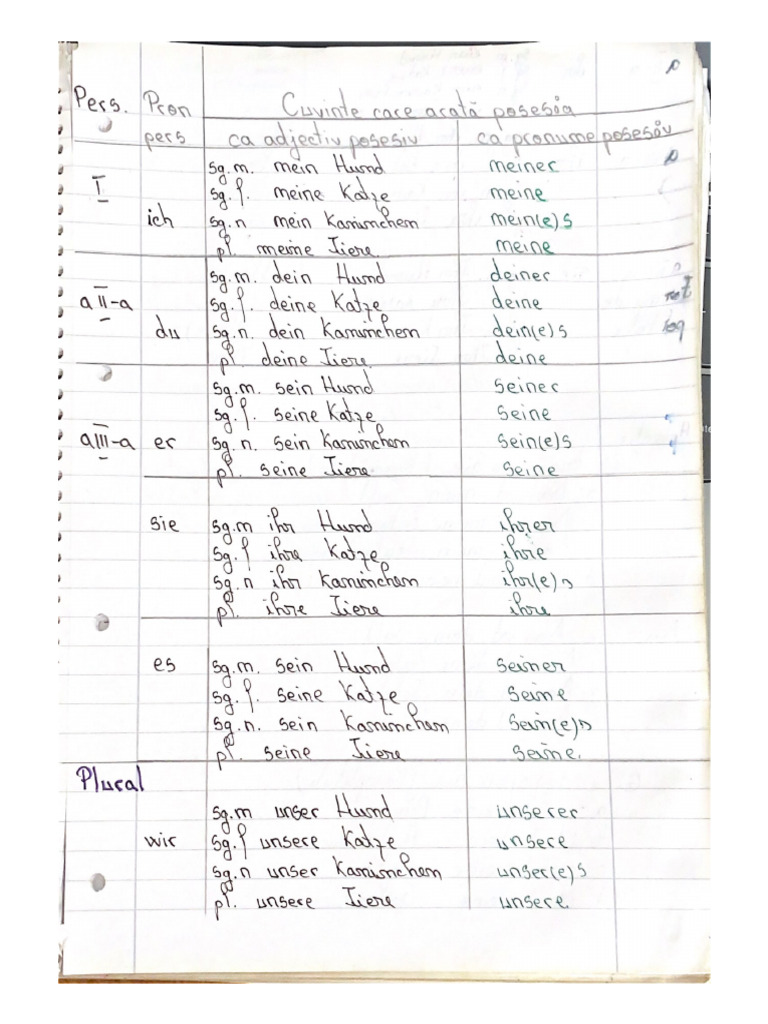 Pers. Pron pers Cuvinte care arată posesia
ca adjectiv posesiv ca pronume posesiv
I ich sg. m. mein Hund meiner
sg. f. meine Katze meine
sg. n mein Kaninchen mein(e)s
pl. meine Tiere meine
a II-a du sg. m. dein Hund deiner
sg. f. deine Katze deine
sg. n. dein Kaninchen dein(e)s
pl. deine Tiere deine
a III-a er sg. m. sein Hund seiner
sg. f. seine Katze seine
sg. n. sein Kaninchen sein(e)s
pl. seine Tiere seine
sie sg. m ihr Hund ihrer
sg. f ihre Katze ihre
sg. n ihr Kaninchen ihr(e)s
pl. ihre Tiere ihre
es sg. m. sein Hund seiner
sg. f. seine Katze seine
sg. n. sein Kaninchen sein(e)s
pl. seine Tiere seine.
Plural
wir sg. m unser Hund unserer
sg. f unsere Katze unsere
sg. n unser Kaninchen unser(e)s
pl. unsere Tiere unsere